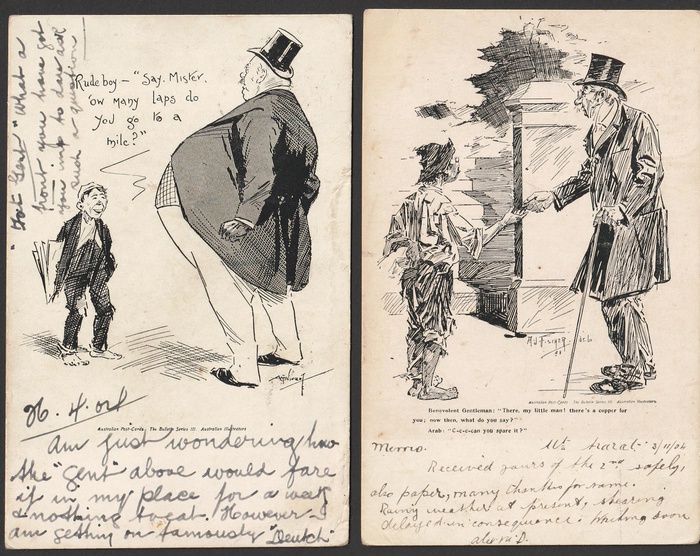 "Fat Gent" "What a
hout you have got
you imp to dare ask
such a question
Rude boy — "Say. Mister.
'ow many laps do
you go to a
mile?"
26.4.04
Australian Post-Cards. The Bulletin Series III. Australian Illustrators
Am just wondering how
the "gent" above would fare
if in my place for a week
& nothing to eat. However I
am getting on famously "Deutch"
A.J. Fischer
Australian Post-Cards. The Bulletin Series III. Australian Illustrators.
Benevolent Gentleman: "There, my little man! there's a copper for
you; now then, what do you say?"
Arab: "C-c-c-can you spare it?"
Memo. Mt Ararat 3/11/04
Received yours of the 2nd safely,
also paper, many thanks for same.
Rainy weather at present, shearing
delayed in consequence. Writing soon